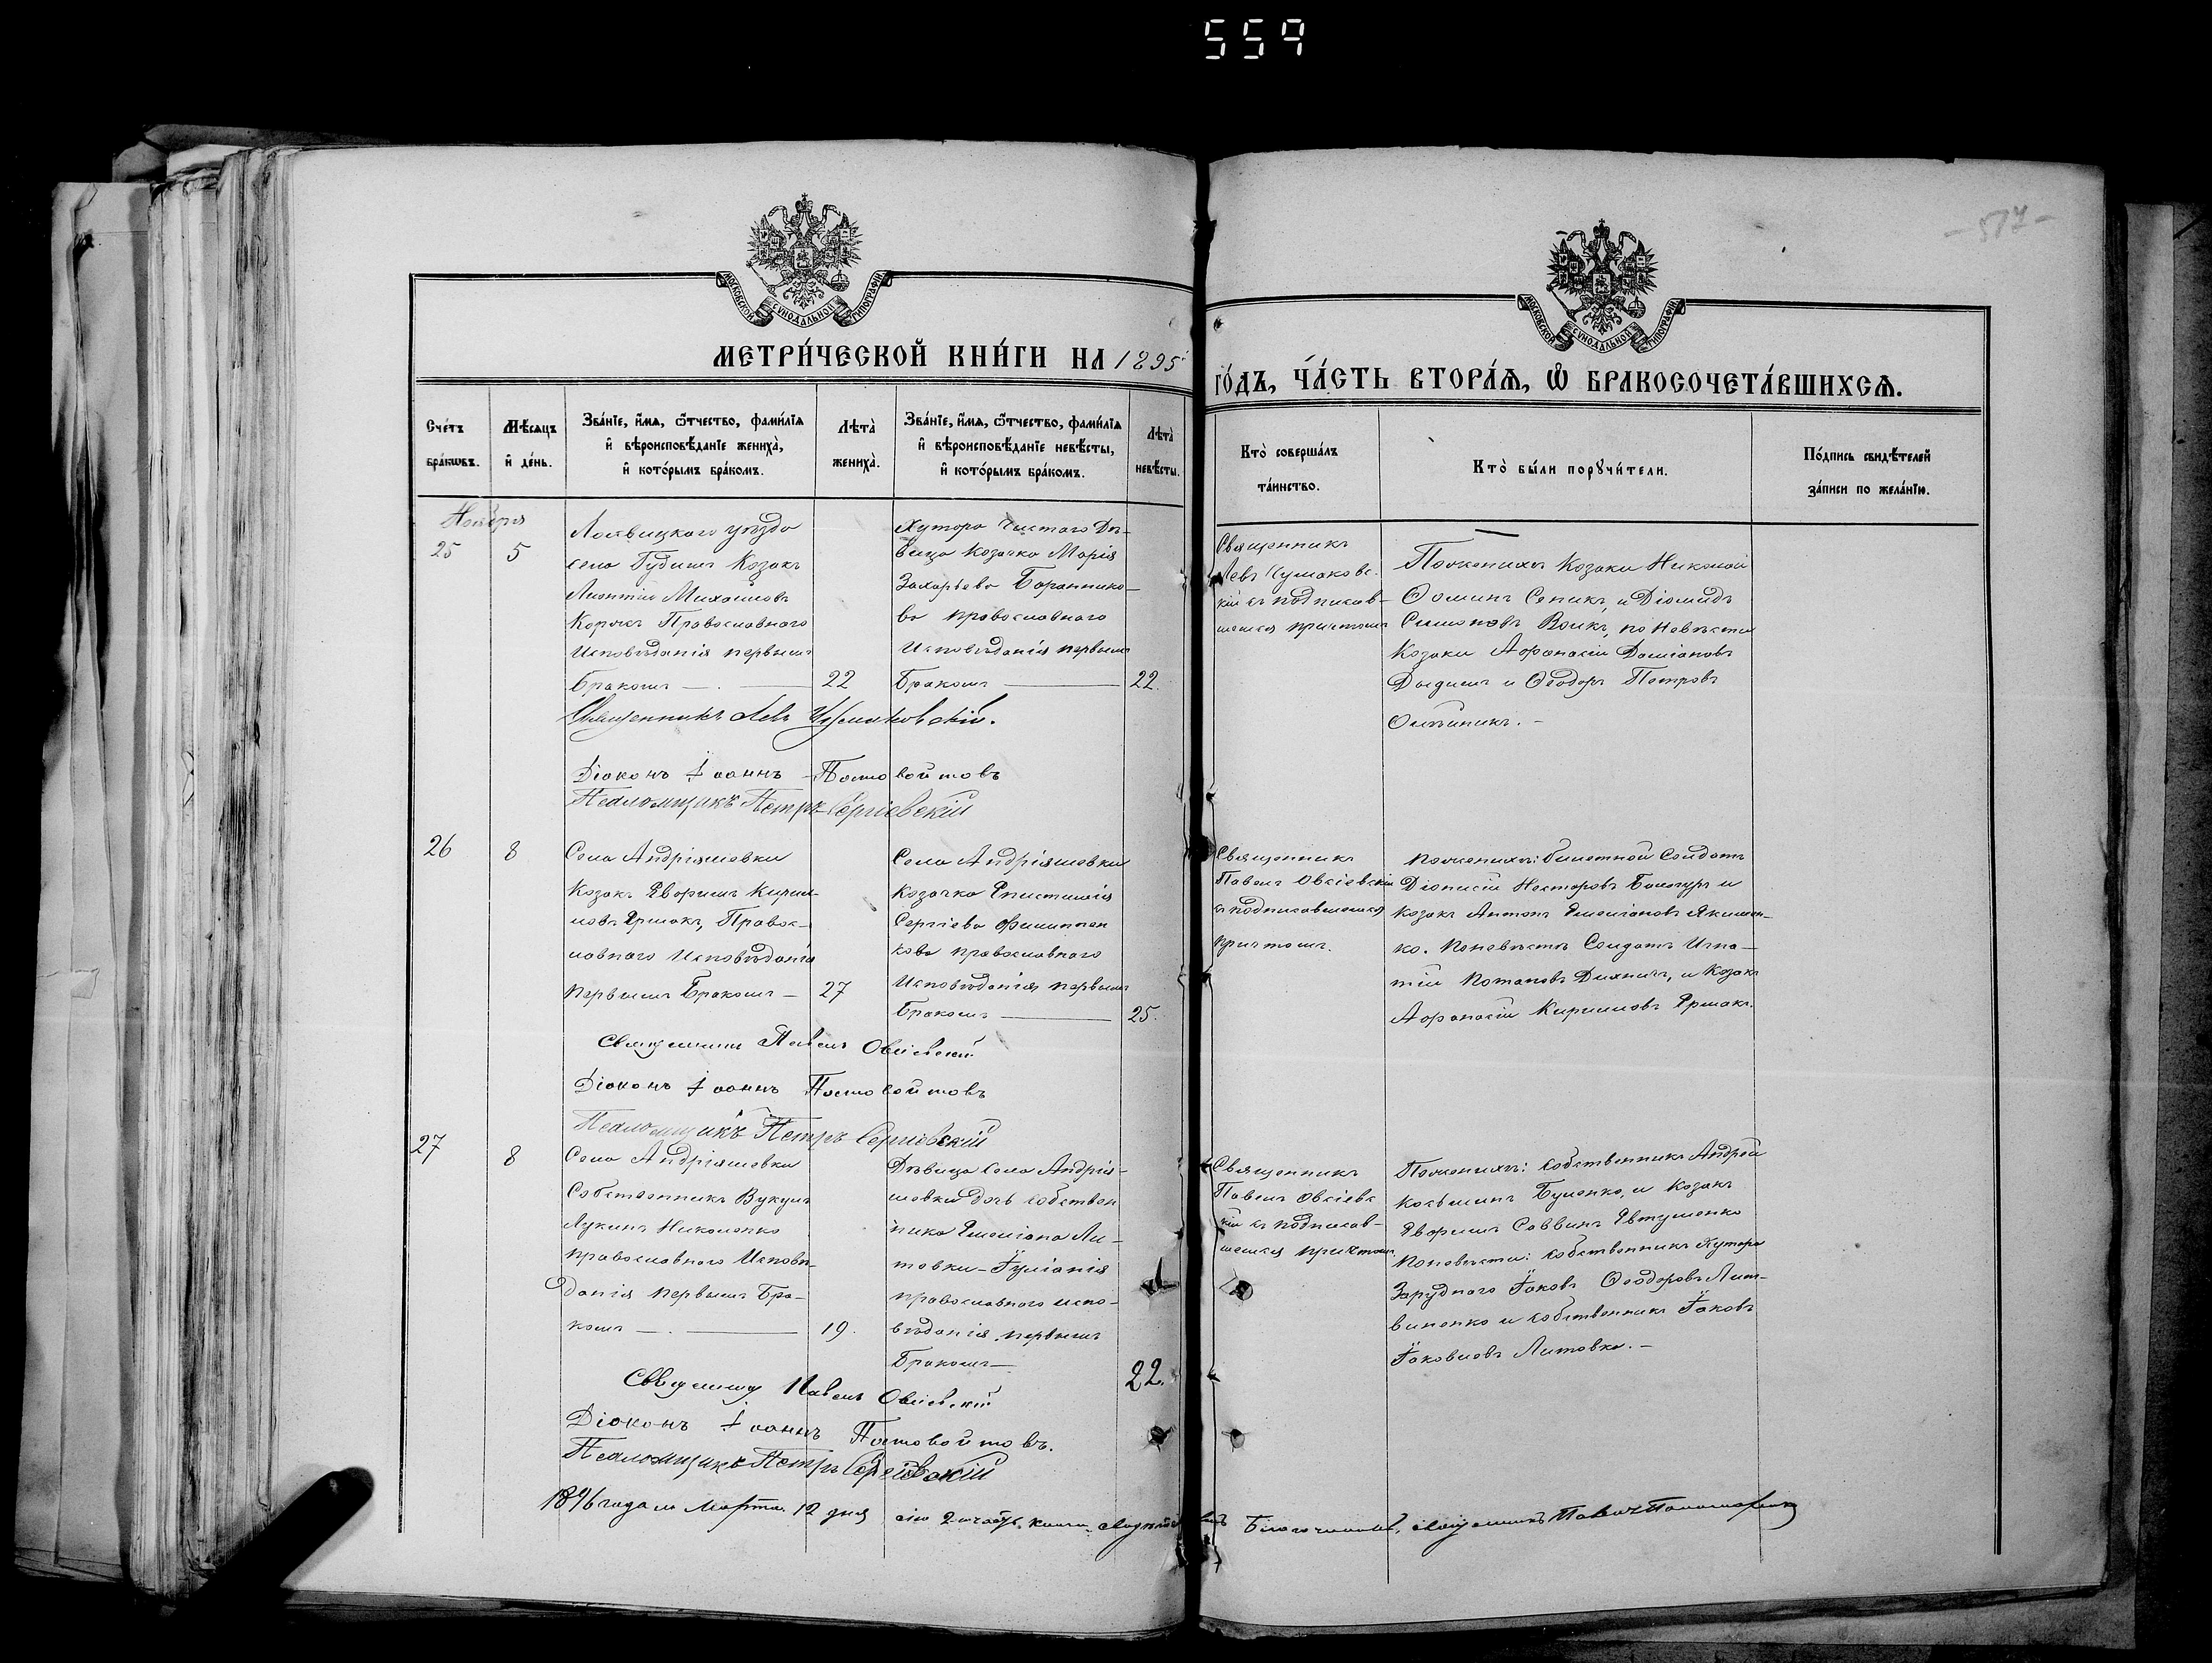 559
517
МОСКОВСКОЙ СѴНОДАЛЬНОЙ ТИПОГРАФІИ
МОСКОВСКОЙ СѴНОДАЛЬНОЙ ТИПОГРАФІИ
МЕТРИ́ЧЕСКОЙ КНИ́ГИ НА 1895
ГО́ДЪ, ЧА́СТЬ ВТОРА́Я, Ѽ БРАКОСОЧЕТА́ВШИХСЯ.
Сче́тъ бра́кωвъ.
Мѣ́сяцъ и҆ де́нь.
Зва́нїе, и҆́мя, ѻ҆́тчество, фами́лїя
и҆ вѣроисповѣ́данїе жениха̀,
и҆ кото́рымъ бра́комъ.
Лѣ́та̀ жениха̀.
Зва́нїе, и҆́мя, ѻ҆́тчество, фами́лїя
и҆ вѣроисповѣ́данїе невѣ́сты,
и҆ кото́рымъ бра́комъ.
Лѣ́та̀ невѣ́сты.
Кто̀ соверша́лъ
та́инство.
Кто̀ бы́ли порꙋчи́тели.
По́дпись свидѣ́телей
за́писи по жела́нїю.
Ноября
25
5
Лохвицкаго уѣзда
села Козакъ
Леонтій Михаиловъ
Православнаго
Исповѣданія первымъ
бракомъ
22
Хутора Чистаго Дѣ-
вица Козачка Марія
Захарьева Баранико-
ва православнаго
Исповѣданія первымъ
Бракомъ
22.
Священникъ
Левъ
кій съ подписав-
шемся причтомъ
Поженихѣ Козаки Николай
Ѳоминъ Сепикъ, и Діомидъ
Симоновъ Волкъ, по Невѣстѣ
Козаки Афанасій Даміановъ
и Ѳеодоръ Петровъ
Священникъ Левъ
Діаконъ Іоаннъ Постовойтовъ
Псаломщикъ Петръ Сергіевскій
26
8
Села Андріяшовки
Козакъ Ефремъ Кирил-
ловъ Ермакъ, Правос-
лавнаго Исповѣданія
первымъ Бракомъ
27
Села Андріяшовки
Козачка Епистимія
Сергіева Филиппен
кова православнаго
Исповѣданія первымъ
Бракомъ
25.
Священникъ
Павелъ Овсіевскій
съ подписавшемся
причтомъ.
поженихѣ: билетной Солдатъ
Діонисій Несторовъ Балагуръ и
козакъ Антонъ Емеліановъ Якимен-
ко. поневѣстѣ Солдатъ Игна-
тій Потаповъ и Козакъ
Афанасій Кирилловъ Ермакъ.
Священникъ Павелъ Овсіевскій
Діаконъ Іоаннъ Постовойтовъ
Псаломщикъ Петръ Сергіевскій
27
8
Села Андріяшовки
Собственникъ Вукулъ
Лукинъ Николенко
православнаго Исповѣ-
данія первымъ Бра-
комъ
19.
Дѣвица села Андрія-
шовки дочь собствен
ника Емеліана Ли-
товки - Іуліанія
православнаго испо-
вѣданія первымъ
Бракомъ
22.
Священникъ
Павелъ Овсіевс
кій съ подписав-
шемся причтомъ.
Поженихѣ: собственникъ Андрей
Косьминъ Буленко, и козакъ
Ефремъ Саввинъ Евтушенко
поневѣстѣ: собственникъ Хутора
Заруднаго Іаковъ Ѳеодоровъ Лит-
виненко и собственникъ Іаковъ
Іаковлевъ Литовка.
Священникъ Павелъ Овсіевскій
Діаконъ Іоаннъ Постовойтовъ.
Псаломщикъ Петръ Сергіевскій
1896 года Марта 12 дня сію 2 часть книги Благочинный, священникъ Павелъ Пономаренко